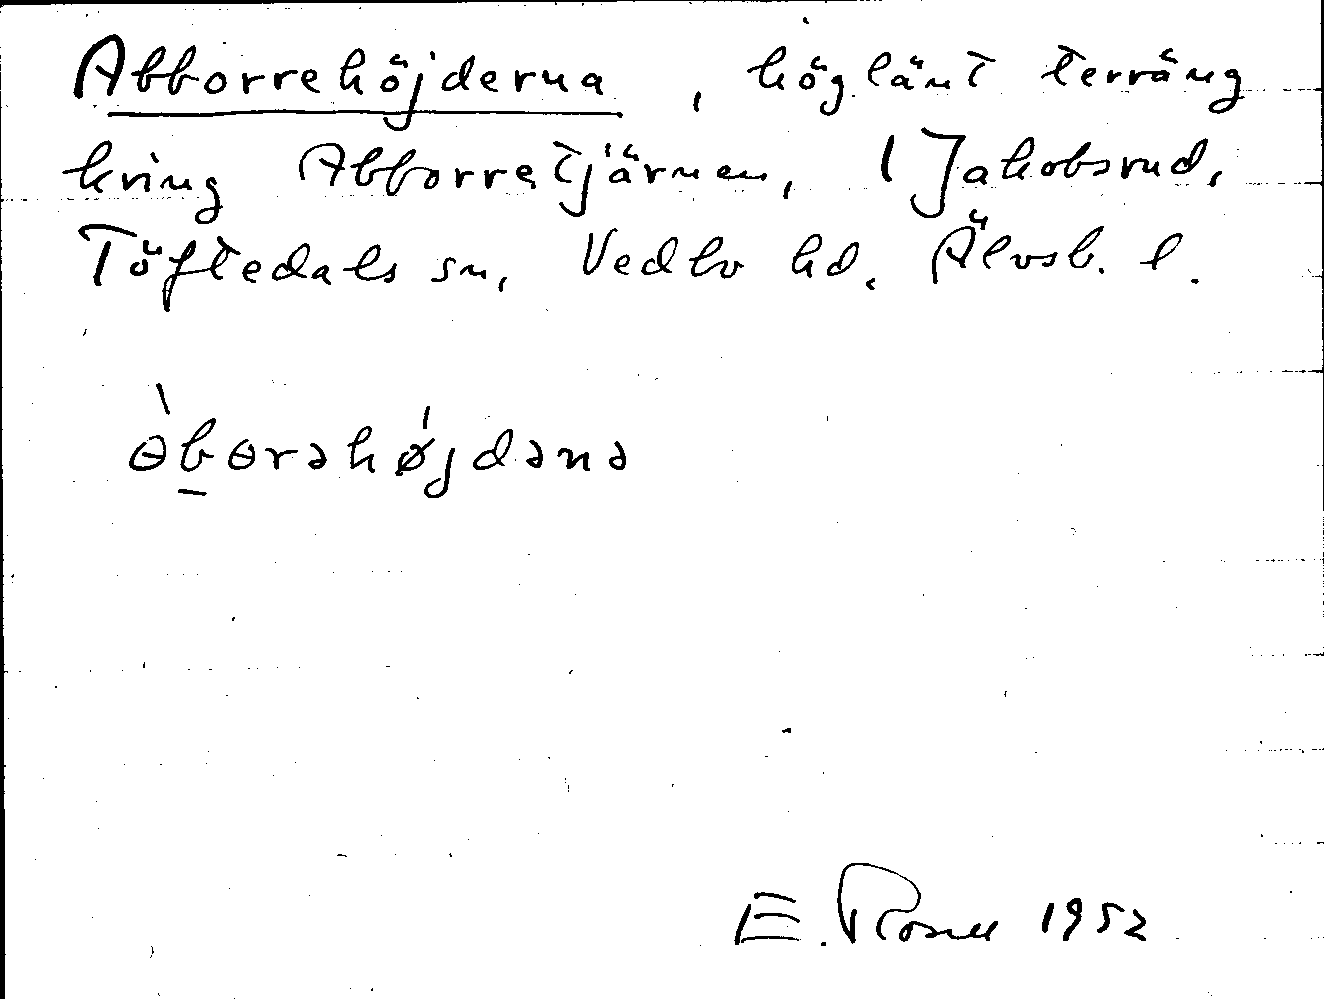 Abborrehöjderna, höglänt terräng
kring Abborretjärnen, 1 Jakobsrud,
Töftedals sn, Vedbo hd. Älvsb. l.
ɵ̀b̲ɵrəhǿjdənə
E. Rosell 1952